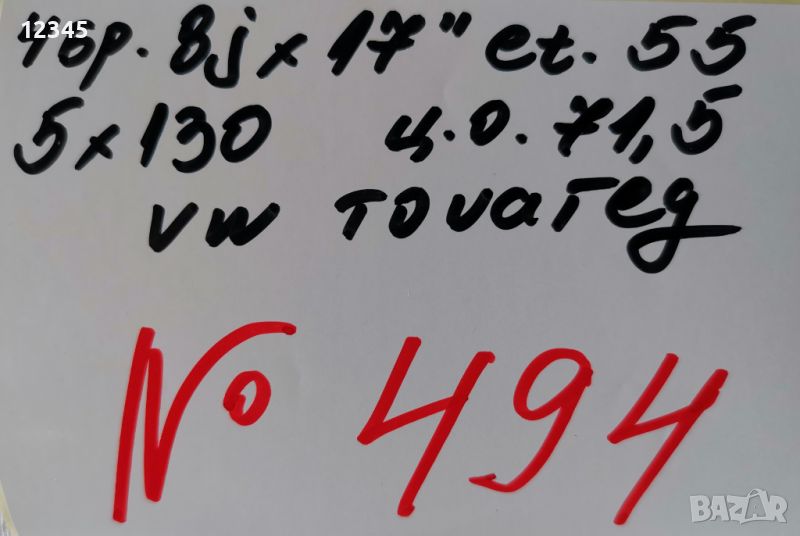 12345
4бр. 8j x 17" et. 55
5 x 130 ц.о. 71,5
vw тоuaгeg
№ 494
BAZAR